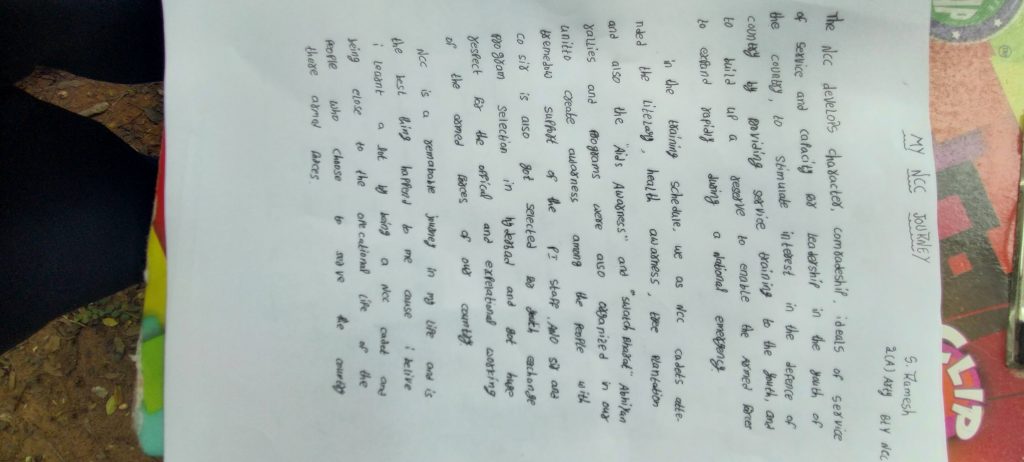 S. Ramesh
2(A) Arty BTY NCC
MY NCC JOURNEY
The NCC develops character, combadeship, ideals of service
of service and capacity for leadership in the youth of
the country, to stimulate interest in the defence of
country by providing service training to the youth, and
to build up a reserve to enable the armed forces
to extand rapidly during a national emergency.
in the training schedule, we as NCC cadets atte-
nded the literacy, health awarness, tree plantation
and also the "Aids Awarness" and "swatch Bharat" Abhiyan
rallies and programs were also organized in our
unitto create awarness among the people with
tremedow support of the PI staff. sir and
co sir is also got selected exchange
program selection in and got huge
respect for the offical and working
of the armed forces of our country
NCC is a remarable journey in my life and is
the best thing happend to me cause i belive
i learnt a lot by being a NCC cadet and
being close to the operational life of the
people who choose to serve the country
there armed forces
CLIP